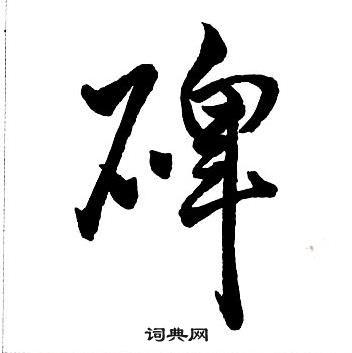 碑
词典网